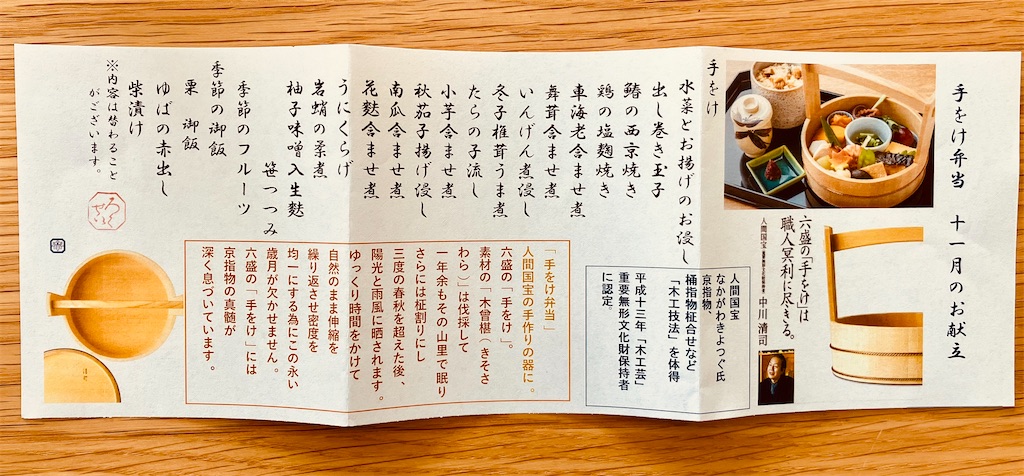 手をけ弁当　十一月のお献立
六盛の「手をけ」は
職人冥利に尽きる。
中川 清司
人間国宝
なかがわきよつぐ氏
京指物、
桶指物柾合せなど
「木工技法」を体得
平成十三年「木工芸」
重要無形文化財保持者
に認定。
手をけ
水菜とお揚げのお浸し
出し巻き玉子
鰆の西京焼き
鶏の塩麹焼き
車海老含ませ煮
舞茸含ませ煮
いんげん煮浸し
冬子椎茸うま煮
たらの子流し
小芋含ませ煮
秋茄子揚げ浸し
南瓜含ませ煮
花麩含ませ煮
うにくらげ
岩蛸の柔煮
柚子味噌入生麩
笹つつみ
季節のフルーツ
季節の御飯
栗　御飯
ゆばの赤出し
柴漬け
※内容は替わること
がございます。
「手をけ弁当」
人間国宝の手作りの器に。
六盛の「手をけ」。
素材の「木曾椹（きそさ
わら）」は伐採して
一年余もその山里で眠り
さらには柾割りにし
三度の春秋を超えた後、
陽光と雨風に晒されます。
ゆっくり時間をかけて
自然のまま伸縮を
繰り返させ密度を
均一にする為にこの永い
歳月が欠かせません。
六盛の「手をけ」には
京指物の真髄が
深く息づいています。